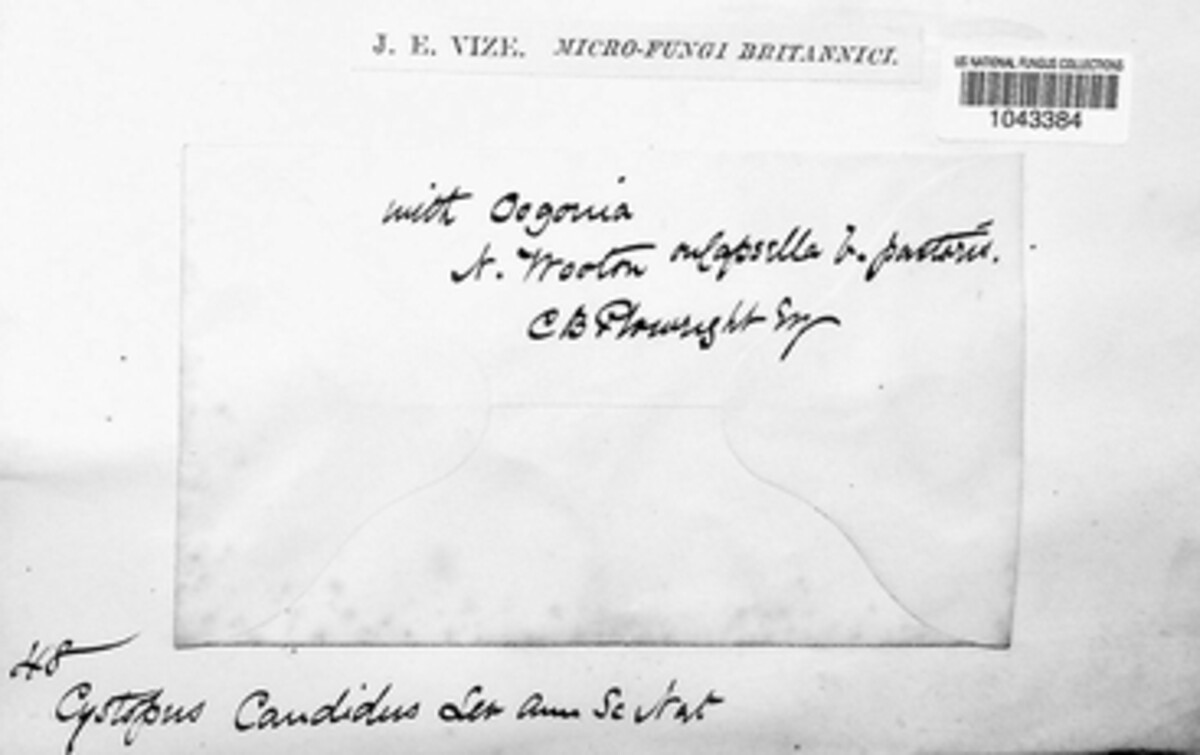 J. E. VIZE. MICRO-FUNGI BRITANNICI.
US NATIONAL FUNGUS COLLECTIONS
1043384
with Oogonia
N. Wooton on Capsella b. pastoris.
C B Plowright Esq
48
Cystopus Candidus Lev Ann Sc Nat